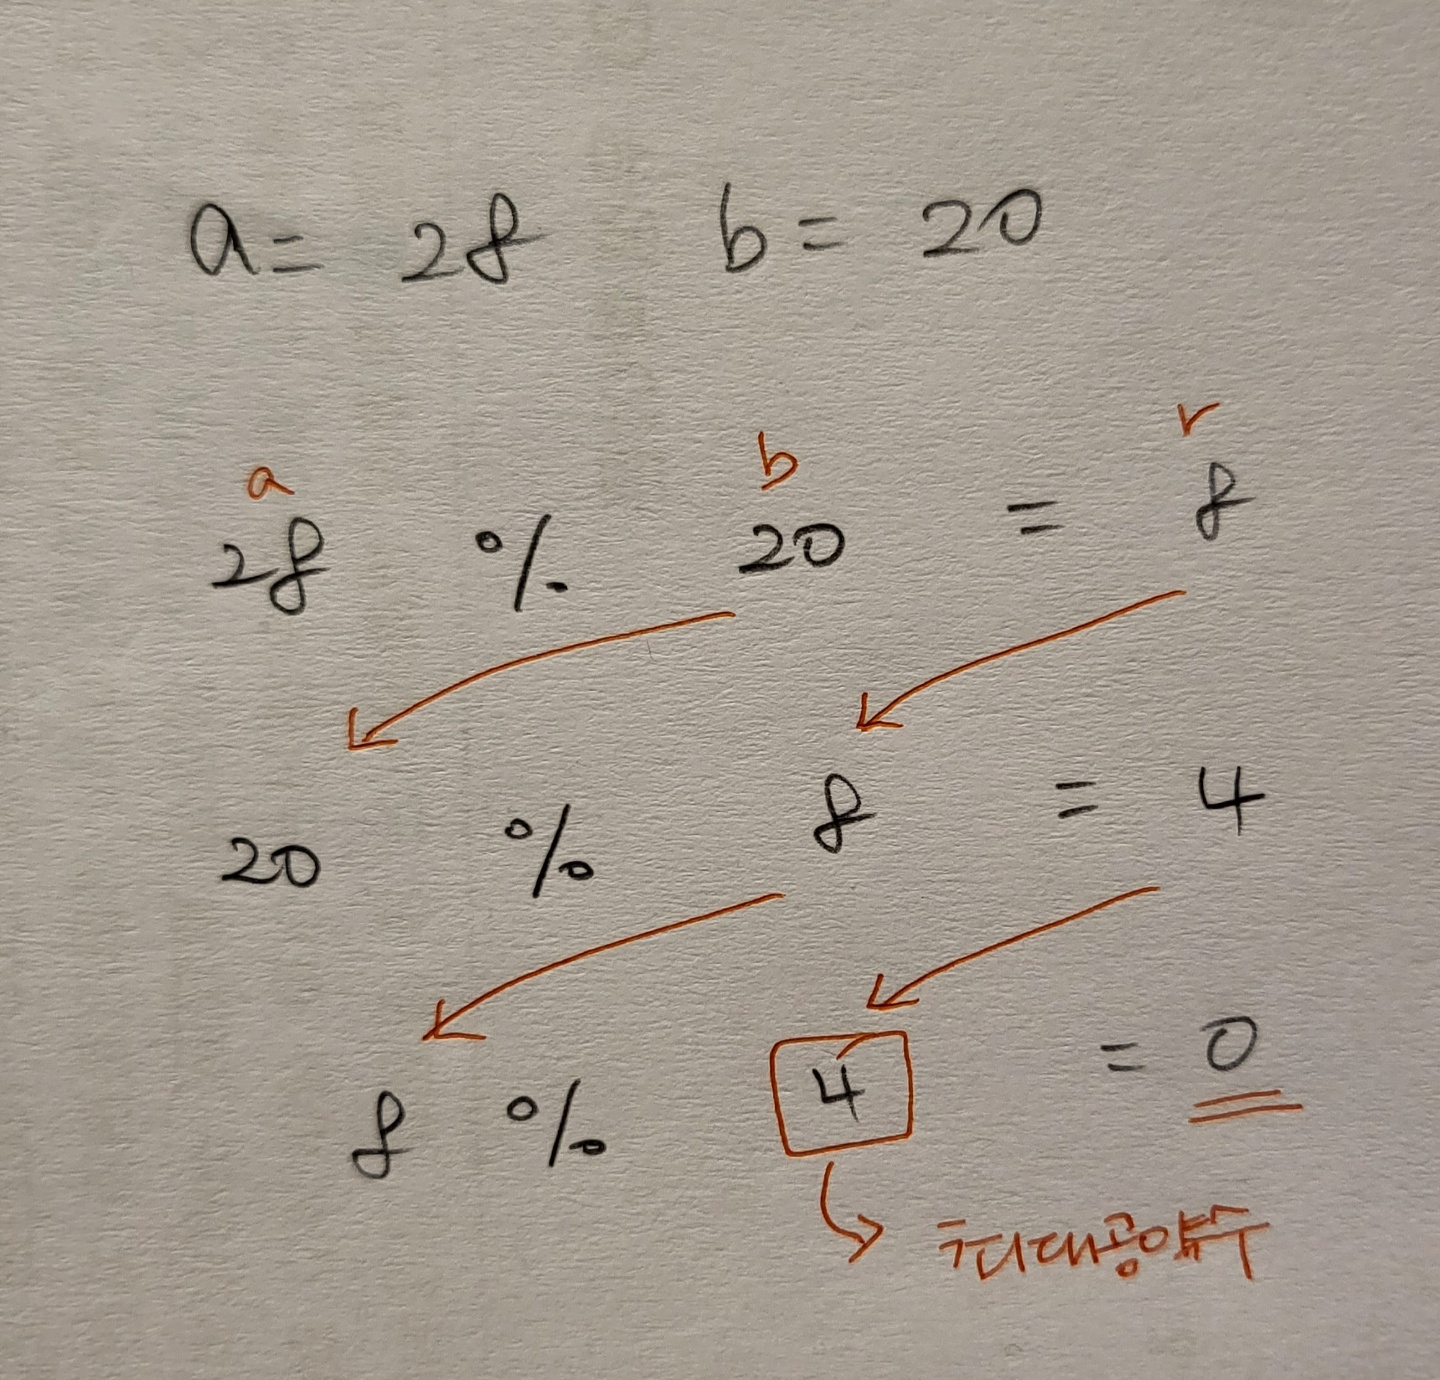 a = 28 b = 20
a b r
28 % 20 = 8
20 % 8 = 4
8 % 4 = 0
최대공약수